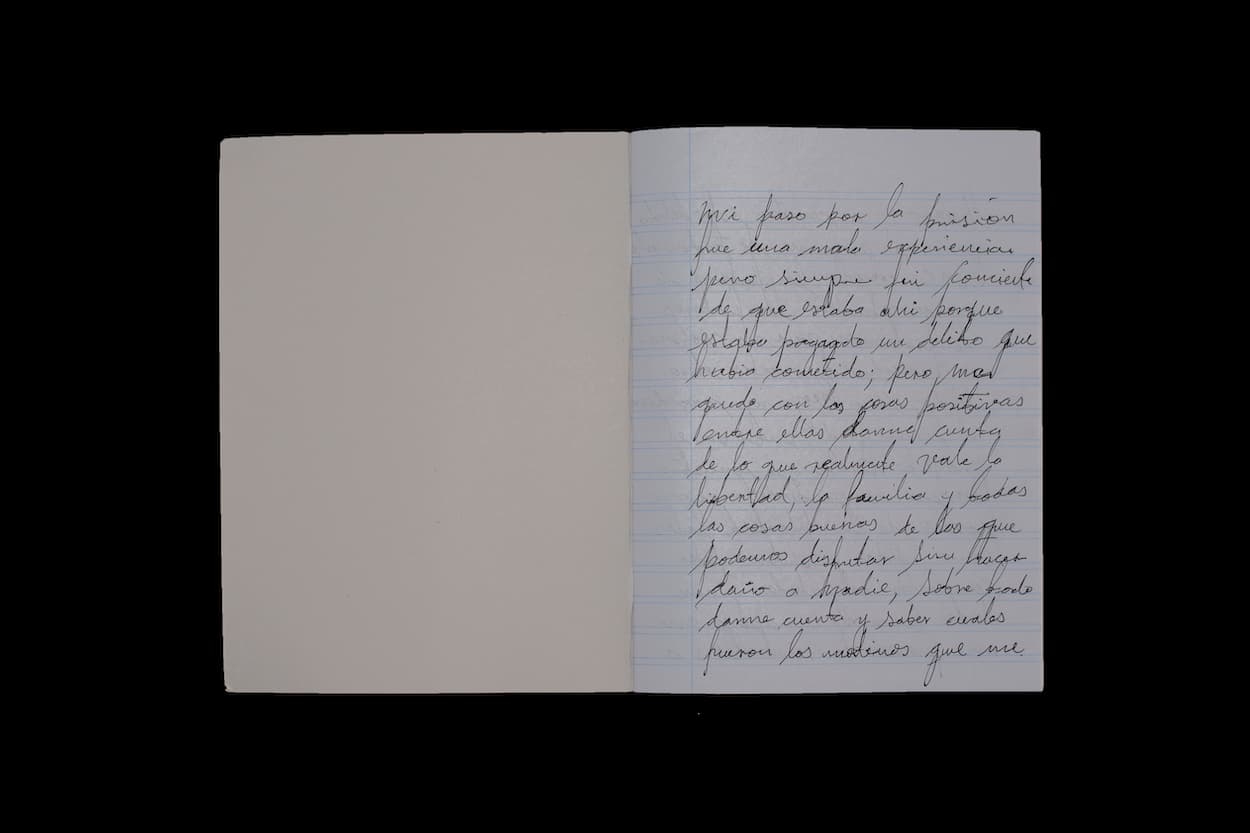 Mi paso por la prisión
fue una mala experiencia
pero siempre fui conciente
de que estaba ahi porque
estaba pagando un delito que
habia cometido; pero me
quedo con las cosas positivas
entre ellas darme cuenta
de lo que realmente vale la
libertad, la familia y todas
las cosas buenas de las que
podemos disfrutar sin hacer
daño a Nadie, sobre todo
darme cuenta y saber cuales
fueron los motivos que me